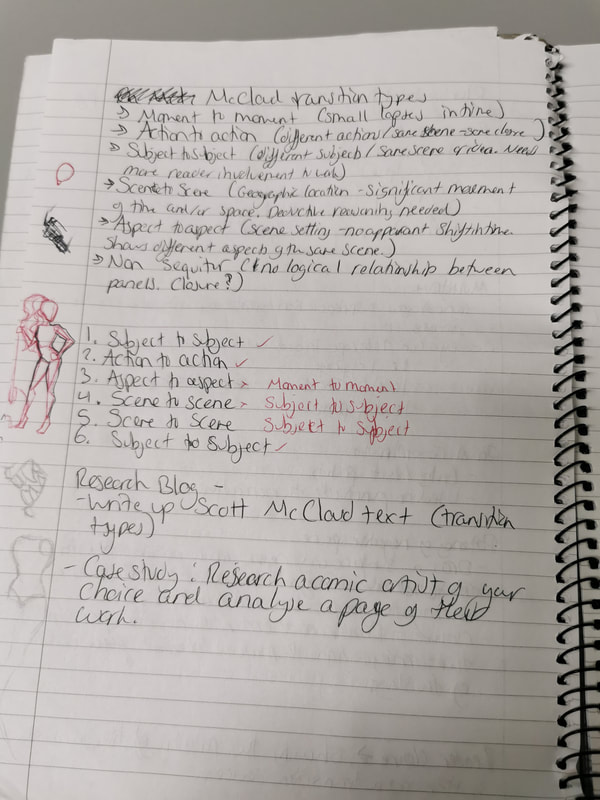 McCloud transition types
→ Moment to moment (small lapses in time)
→ Action to action (different action/same scene - some closure)
→ Subject to subject (different subject/same scene of idea. Needs
more reader involvement
→ Scene to Scene (Geographic location - significant movement
of time and/or space. Deductive reasoning needed)
→ Aspect to aspect (scene setting - no apparant shift in time
shows different aspects of the same scene.)
→ Non Sequitur (no logical relationship between
panels. Closure?)
1. Subject to Subject ✓
2. Action to action ✓
3. Aspect to aspect > Moment to moment
4. Scene to Scene > Subject to subject
5. Scene to Scene Subject to subject
6. Subject to Subject ✓
Research Blog -
- Write up Scott McCloud text (transition
types)
- Case study : Research a comic artist of your
choice and analyse a page of their
work.